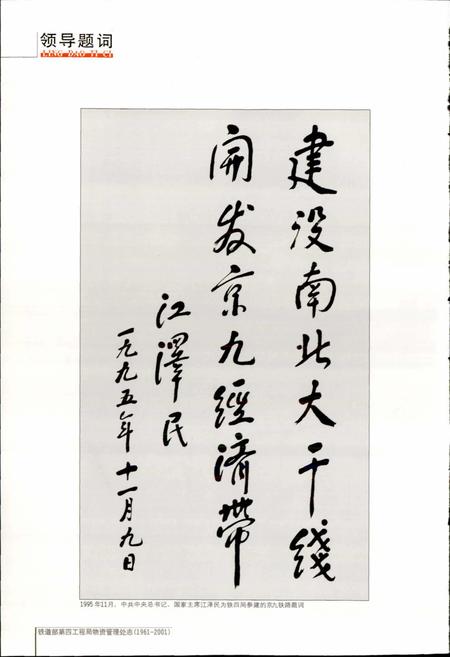 领导题词
LING DAO TI CI
建设南北大干线
开发京九經济带
江澤民
一九九五年十一月九日
1995年11月，中共中央总书记、国家主席江泽民为铁四局参建的京九铁路题词
铁道部第四工程局物资管理处志(1961-2001)